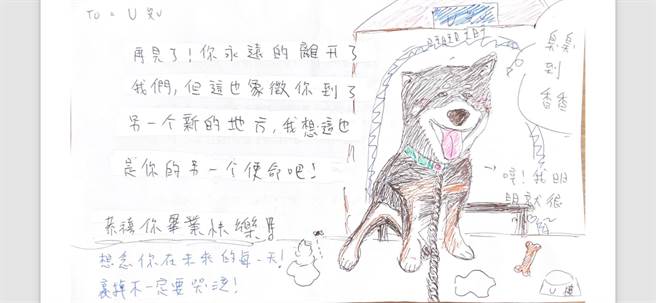 TO = U
再見了!你永遠的離开了
我們,但這也象徵你到了
另一个新的地方,我想這也
是你的另一个使命吧!
恭禧你畢業快樂!!
想念你在未來的每一天!
不一定要哭泣!
臭臭
到
香香
噗!我明
明就很
U